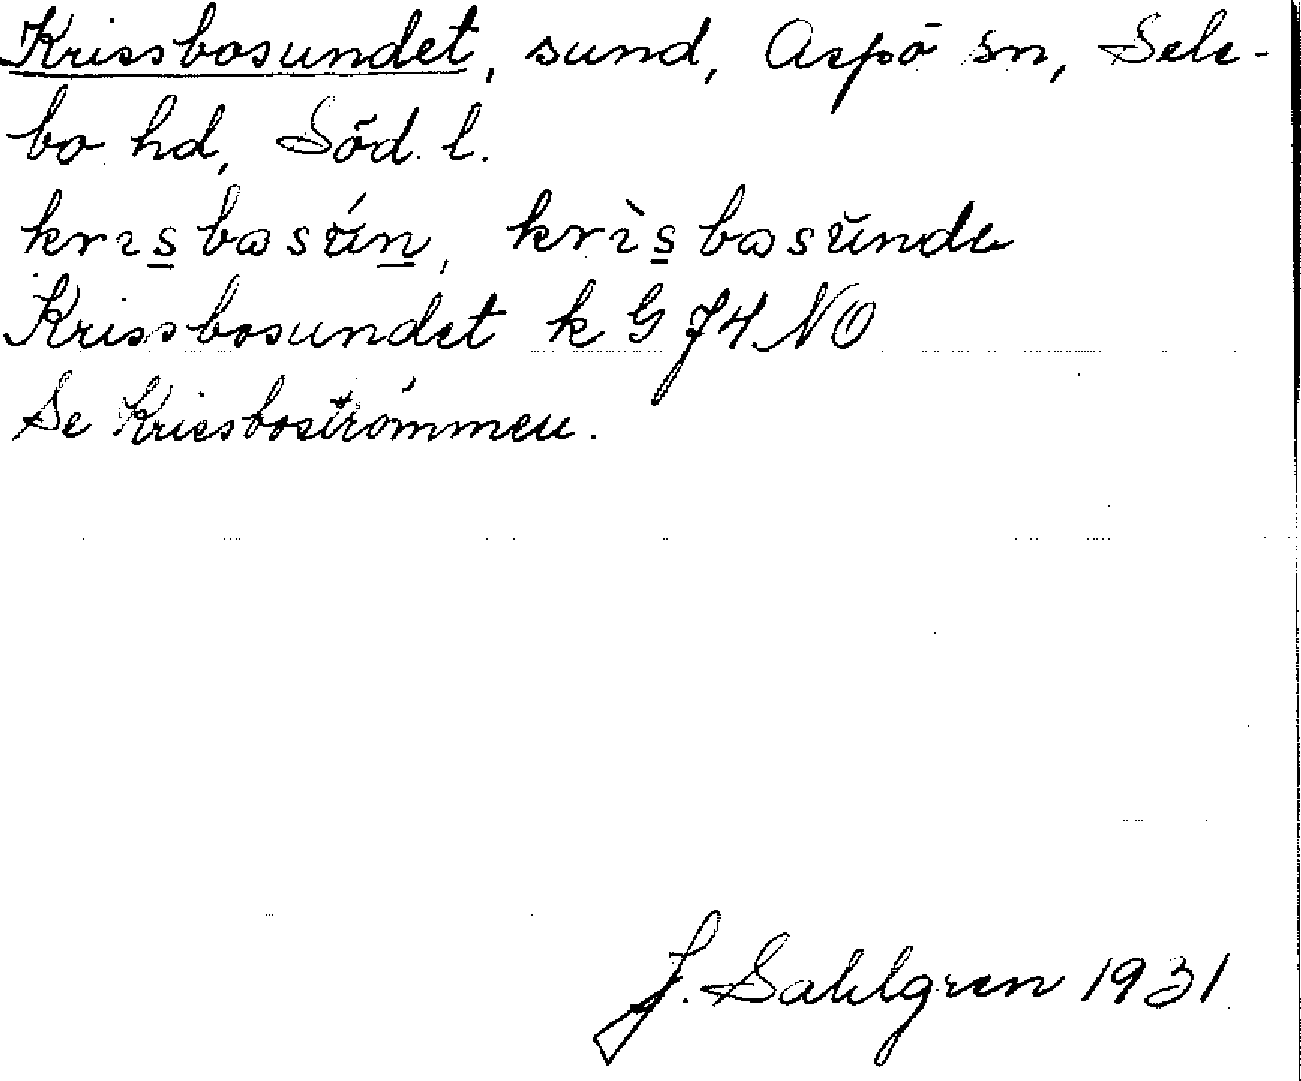 Krissbosundet, sund, Aspö sn, Sele-
bo hd, Söd. l.
krısbɷsún, krìsbɷsŭndə
Krissbosundet k G 74 NO
Se Krissboströmmen.
J. Sahlgren 1931